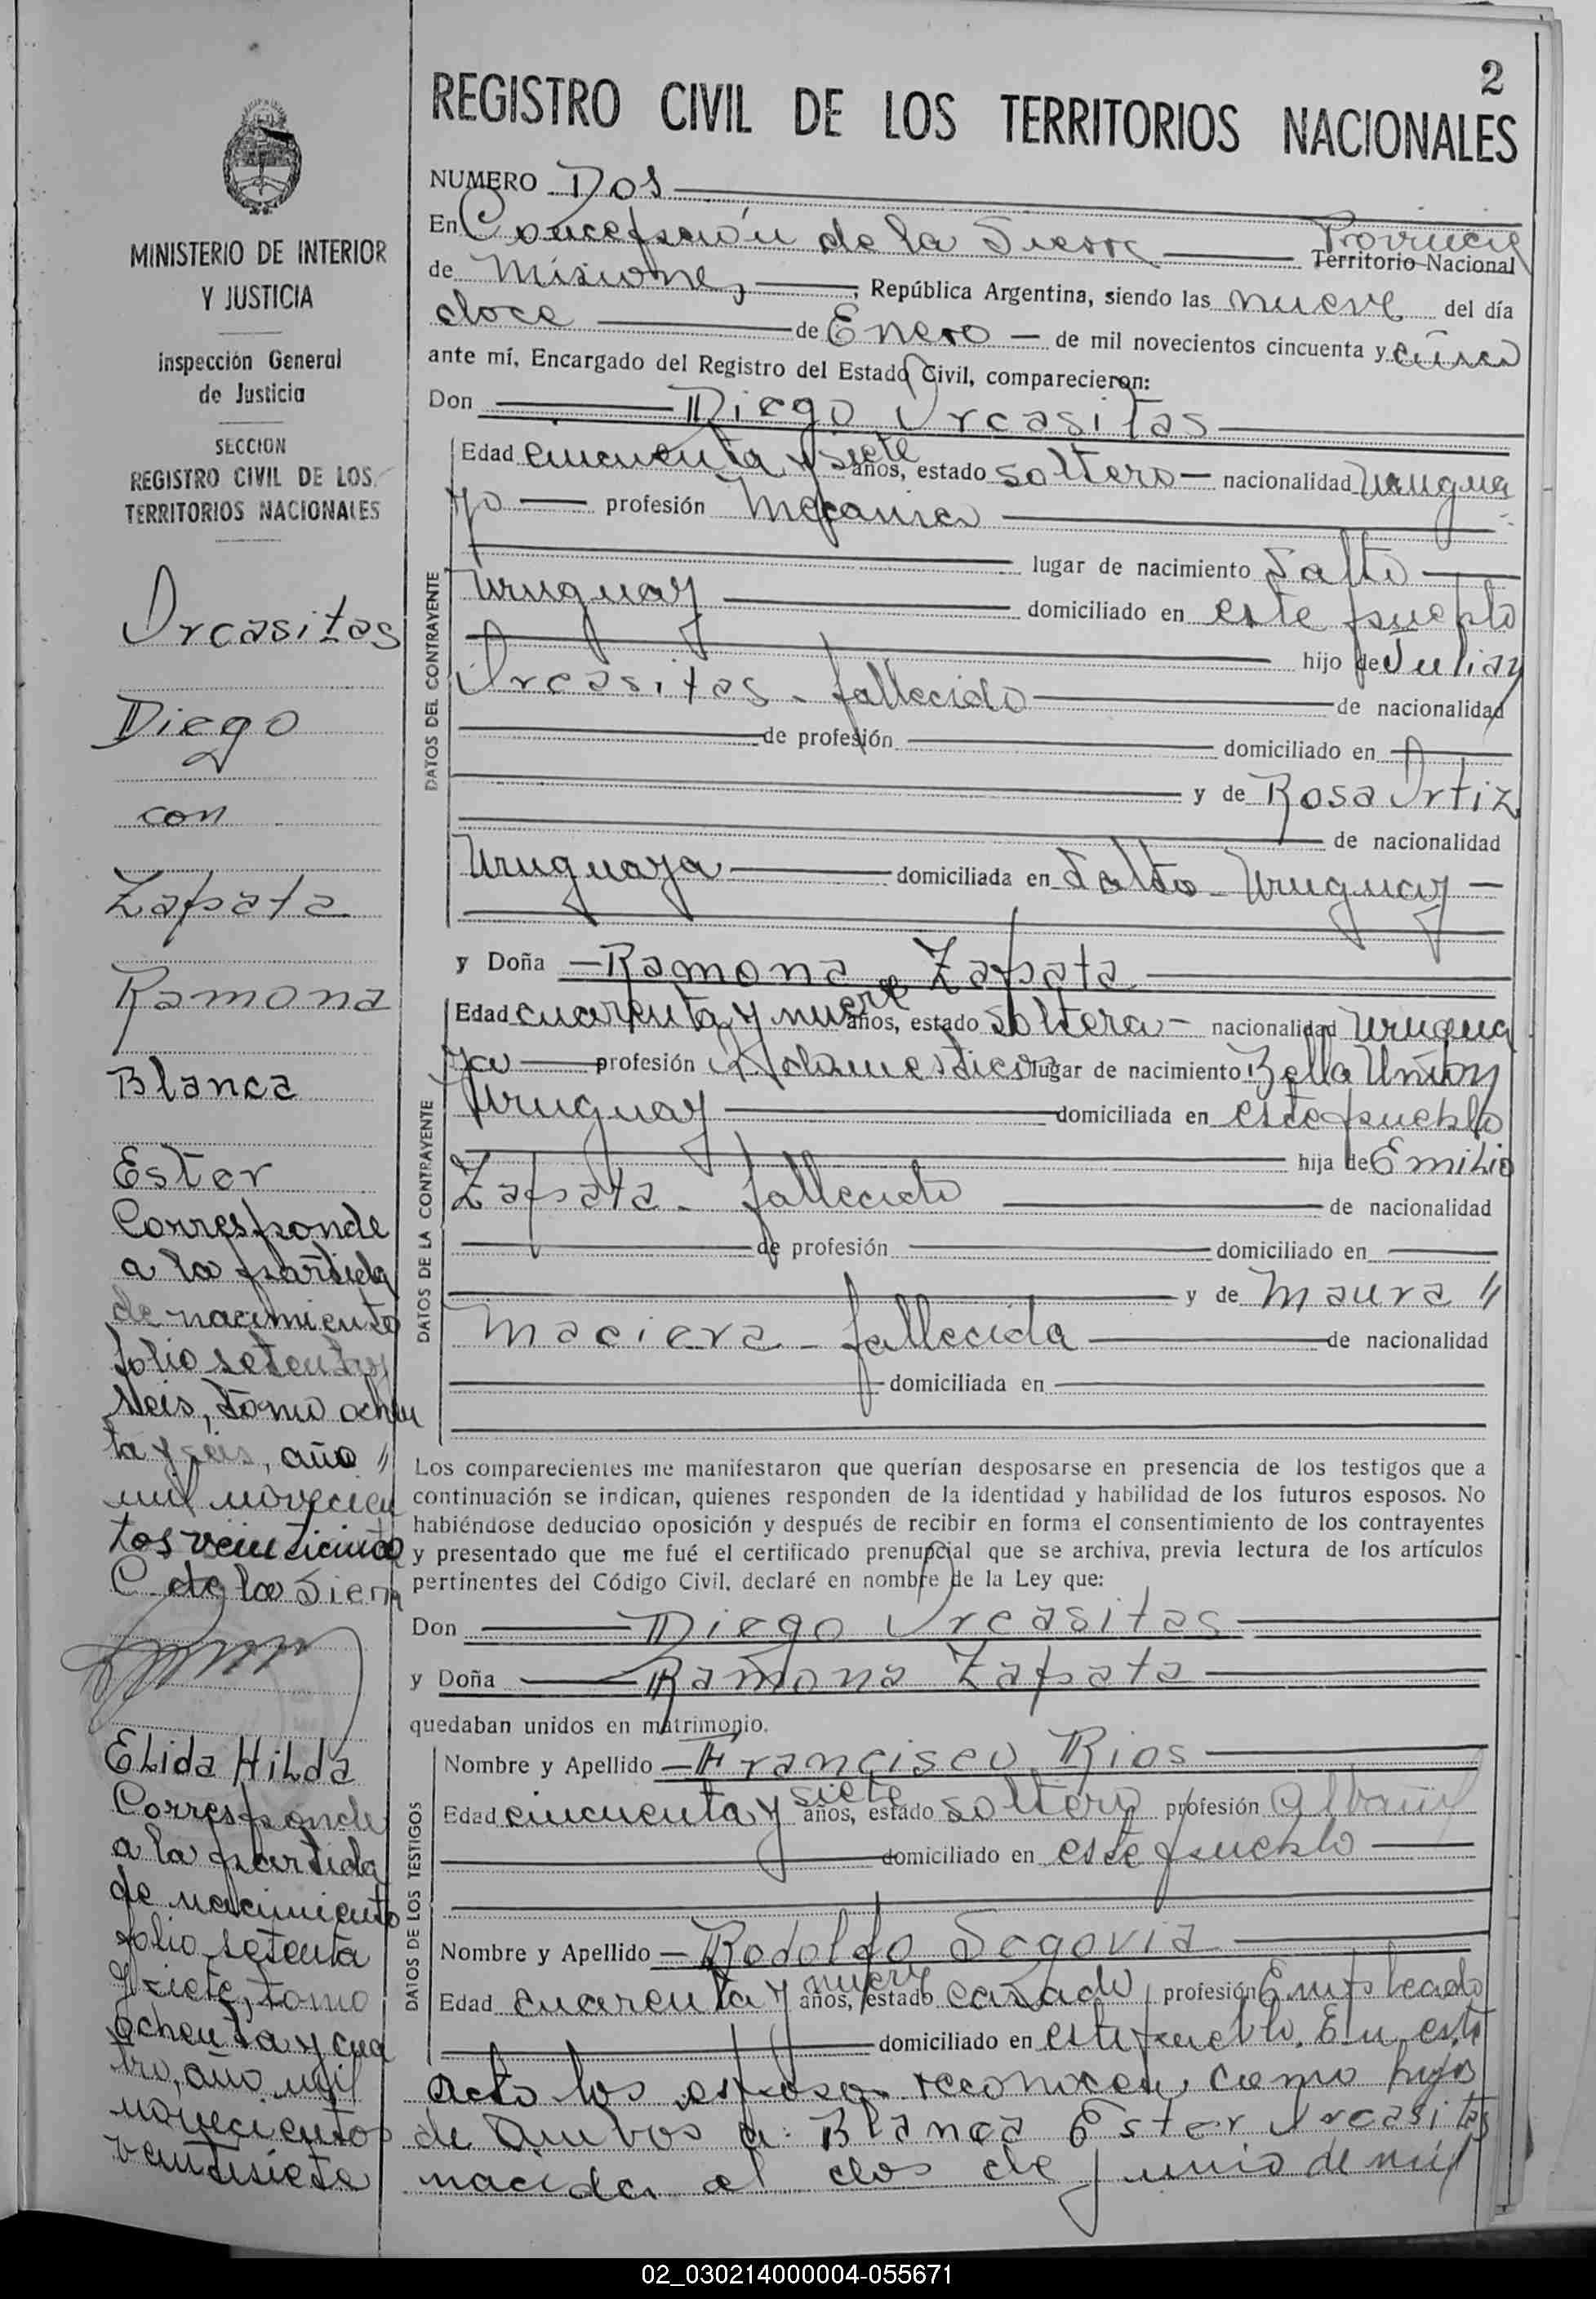 2
REGISTRO CIVIL DE LOS TERRITORIOS NACIONALES
MINISTERIO DE INTERIOR
Y JUSTICIA
Inspección General
de Justicia
SECCION
REGISTRO CIVIL DE LOS
TERRITORIOS NACIONALES
Orcasitas
Diego
con
Zapata
Ramona
Blanca
Ester
Corresponde
a la partida
de nacimiento
folio setenta y
seis, tomo ochen
ta y seis, año "
mil novecien
tos veinticinco
C. de la Sierra
Elida Hilda
Corresponde
a la partida
de nacimiento
folio setenta
y siete, tomo
ochenta y cua
tro, año mil
novecientos
veintisiete
NUMERO Dos
En Concepción de la Sierra Provincia
Territorio Nacional
de Misiones, República Argentina, siendo las nueve del día
doce de Enero de mil novecientos cincuenta y cinco
ante mí, Encargado del Registro del Estado Civil, comparecieron:
Don Diego Orcasitas
DATOS DEL CONTRAYENTE
Edad cincuenta y siete años, estado soltero nacionalidad Urugua
yo profesión Mecanico
lugar de nacimiento Salto
Uruguay domiciliado en este pueblo
hijo de Julian
Orcasitas - fallecido de nacionalidad
de profesión domiciliado en
y de Rosa Ortiz
de nacionalidad
Uruguaya domiciliada en Salto - Uruguay
y Doña Ramona Zapata
DATOS DE LA CONTRAYENTE
Edad cuarenta y nueve años, estado soltera nacionalidad Urugua
ya profesión domesticos lugar de nacimiento Bella Union
Uruguay domiciliada en este pueblo
hija de Emilio
Zapata - fallecido de nacionalidad
de profesión domiciliado en
y de Maura "
Maciera - fallecida de nacionalidad
domiciliada en
Los comparecientes me manifestaron que querían desposarse en presencia de los testigos que a
continuación se indican, quienes responden de la identidad y habilidad de los futuros esposos. No
habiéndose deducido oposición y después de recibir en forma el consentimiento de los contrayentes
y presentado que me fué el certificado prenupcial que se archiva, previa lectura de los artículos
pertinentes del Código Civil, declaré en nombre de la Ley que:
Don Diego Orcasitas
y Doña Ramona Zapata
quedaban unidos en matrimonio.
DATOS DE LOS TESTIGOS
Nombre y Apellido Francisco Rios
Edad cincuenta y siete años, estado soltero profesión Albañil
domiciliado en este pueblo
Nombre y Apellido Rodolfo Segovia
Edad cuarenta y nueve años, estado casado profesión Empleado
domiciliado en este pueblo. En este
acto los esposos reconocen como hijos
de ambos a: Blanca Ester Orcasitas
nacida el dos de junio de mil
02_030214000004-055671